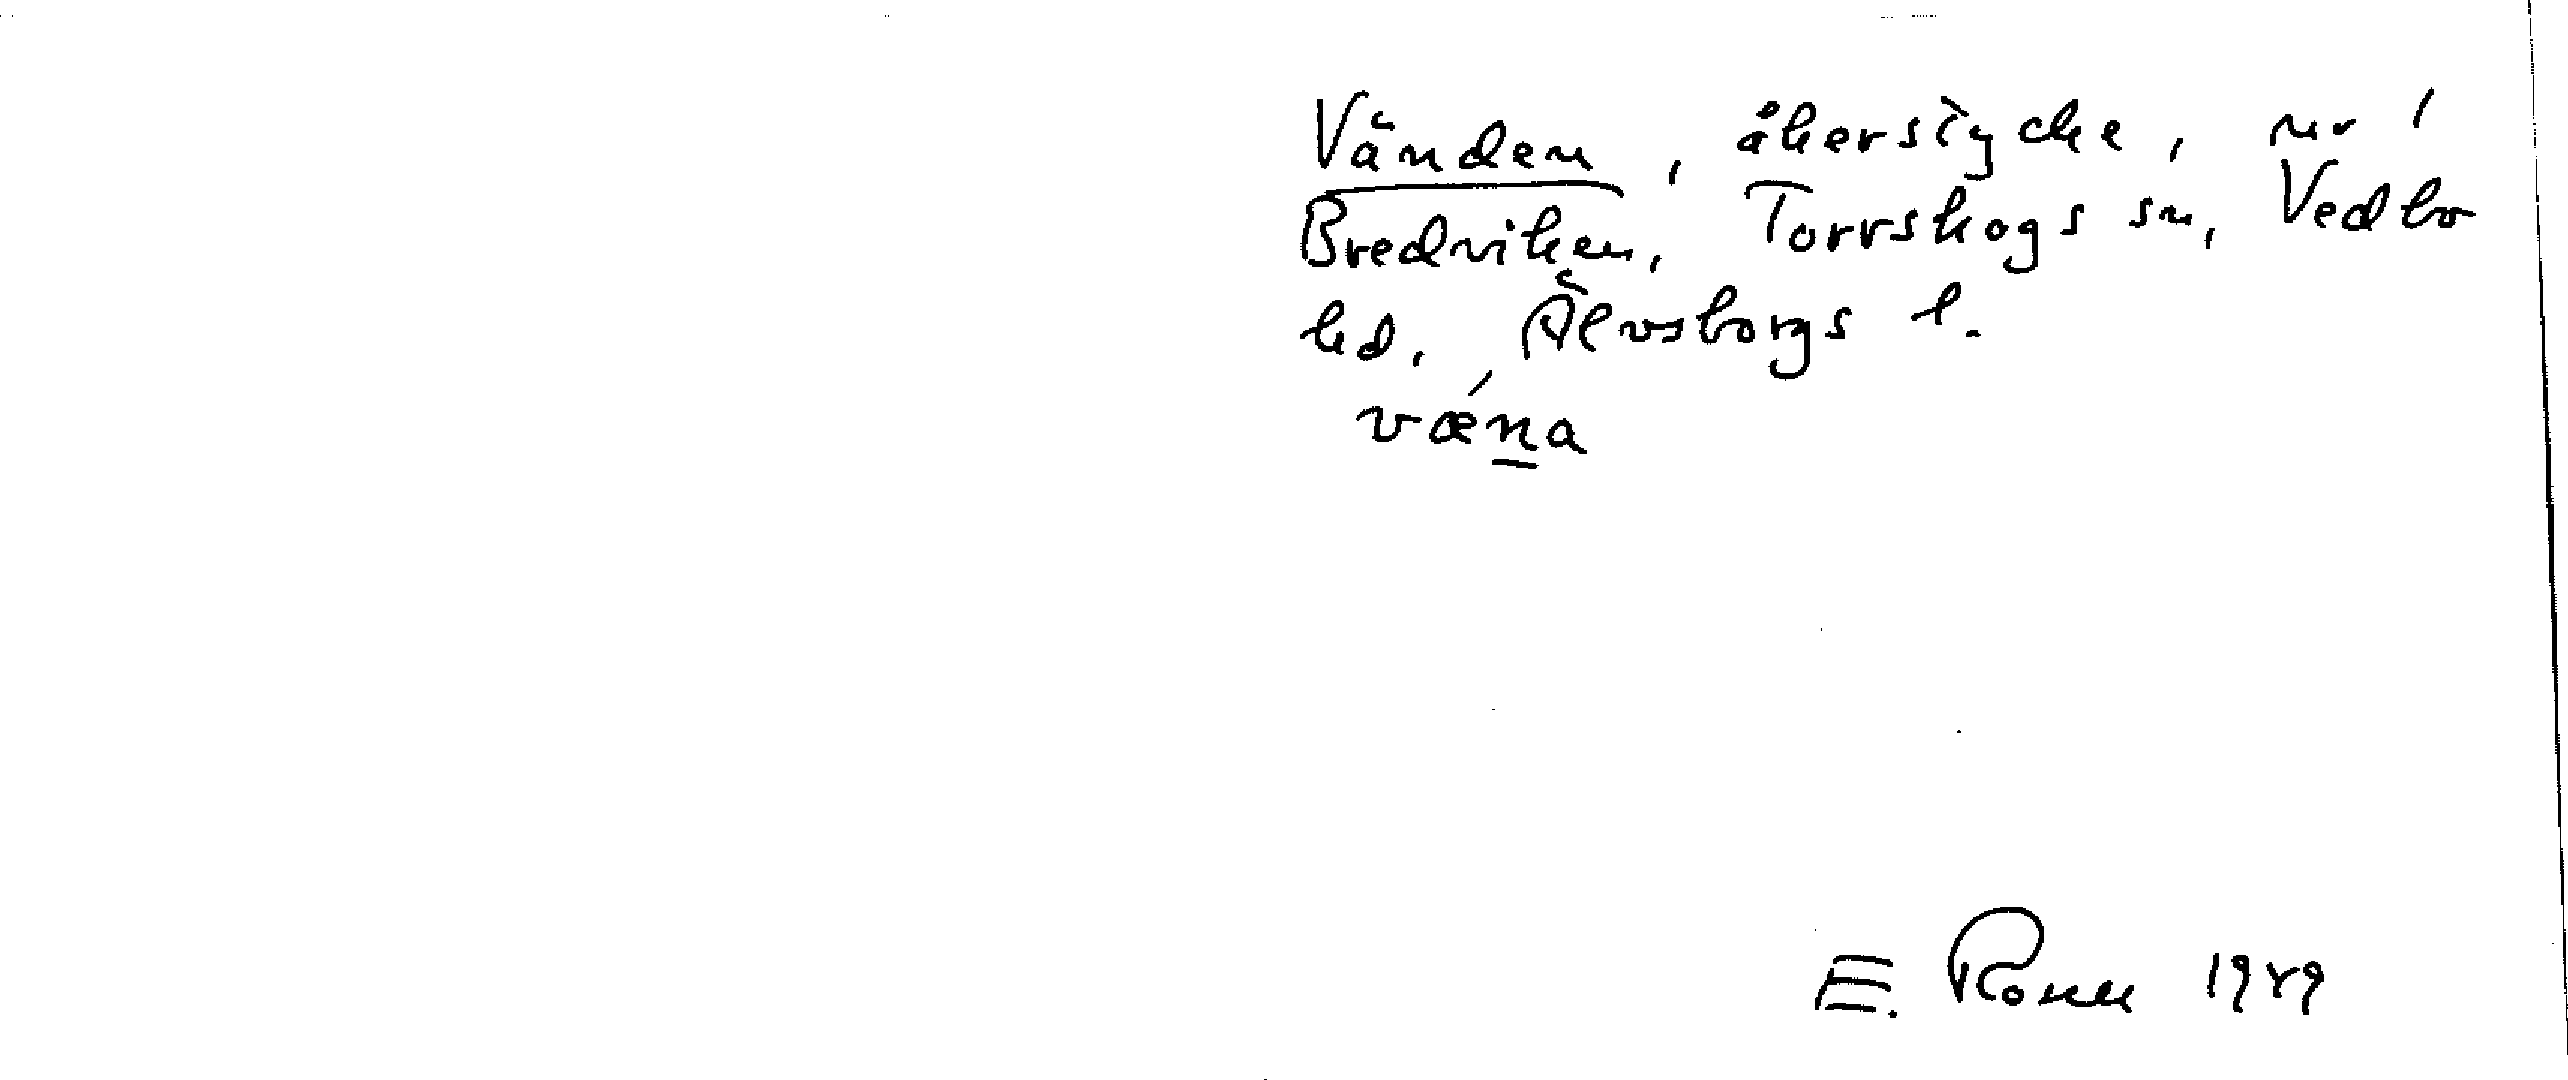 Vänden, åkerstycke, nr 1
Bredviken, Torrskogs sn, Vedbo
hd, Älvsborgs l.
vǽn̲a
E. 1949